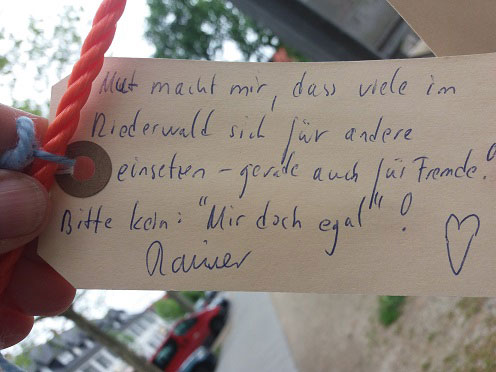 Mut macht mir, dass viele im
Riederwald sich für andere
einsetzen – gerade auch für Fremde.
Bitte kein: "Mir doch egal"!
Rainer